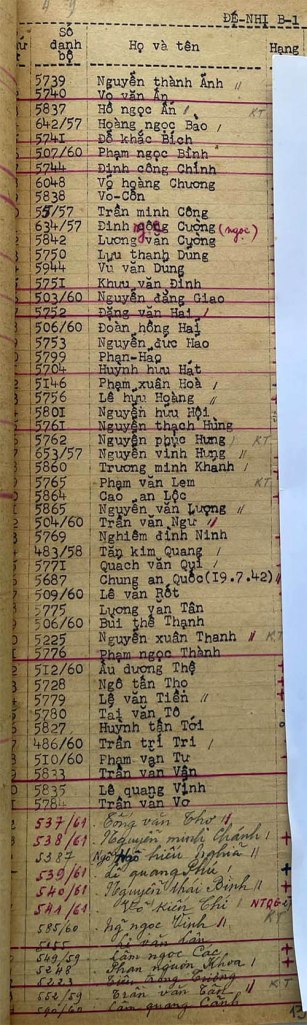 ĐỆ-NHỊ B-1
Số danh bộ Họ và tên Hạng
5739 Nguyễn thành Ánh "
5740 Võ văn Ấn
5837 Hồ ngọc Ẩn / KT
642/57 Hoàng ngọc Bảo /
574I Đỗ khắc Bích
507/60 Phạm ngọc Bỉnh
5744 Định công Chính
6048 Võ hoàng Chương
5838 Vo-Côn
55/57 Trần minh Công
634/57 Đinh Cường (ngọc)
5842 Lương văn Cường
5750 Lưu thanh Dung
5944 Vũ văn Dung
575I Khưu văn Đinh
503/60 Nguyễn đăng Giao
5752 Đặng văn Hai /
506/60 Đoàn hồng Hải
5753 Nguyễn đức Hào
5799 Phan-Hào
5704 Huỳnh hưu Hát
5I46 Phạm xuân Hoà /
5756 Lê hưu Hoàng "
580I Nguyễn hưu Hội
576I Nguyễn thạch Hùng
5762 Nguyễn phúc Hưng / KT
653/57 Nguyễn vinh Hưng "
5860 Trương minh Khanh /
5765 Phạm văn Lem KT
5864 Cao an Lộc
5865 Nguyễn văn Lượng "
504/60 Trần văn Ngư "
5769 Nghiêm đình Ninh
483/58 Tân kim Quang /
577I Quach văn Qui /
5687 Chung an Quốc(I9.7.42) "
509/60 Lê văn Rốt
5775 Lương văn Tân
506/60 Bùi thế Thạnh
5225 Nguyễn xuân Thanh " KT
5776 Phạm ngọc Thành
5I2/60 Âu dương Thệ
5728 Ngô tấn Thọ
5779 Lê văn Tiến "
5780 Tại văn Tô
5827 Huỳnh tấn Tới
486/60 Trần trí Tri /
5I0/60 Phạm văn Tư
5833 Trần văn Vân
5835 Lê quang Vinh
5784 Trần văn Vo
537/61 Tống văn Thơ "
538/61 Nguyễn minh Chánh
5387 Ngô hiếu Nghĩa "
539/61 Lê quang Phú
540/61 Nguyễn thái Bình
541/61 Võ kiến Thi
585/60 Ng ngọc Vinh "
549/59 Lâm ngọc Các
5248 Phan nguơn Khoa
552/59 Trần văn KT
590/60 Lâm quang Cảnh